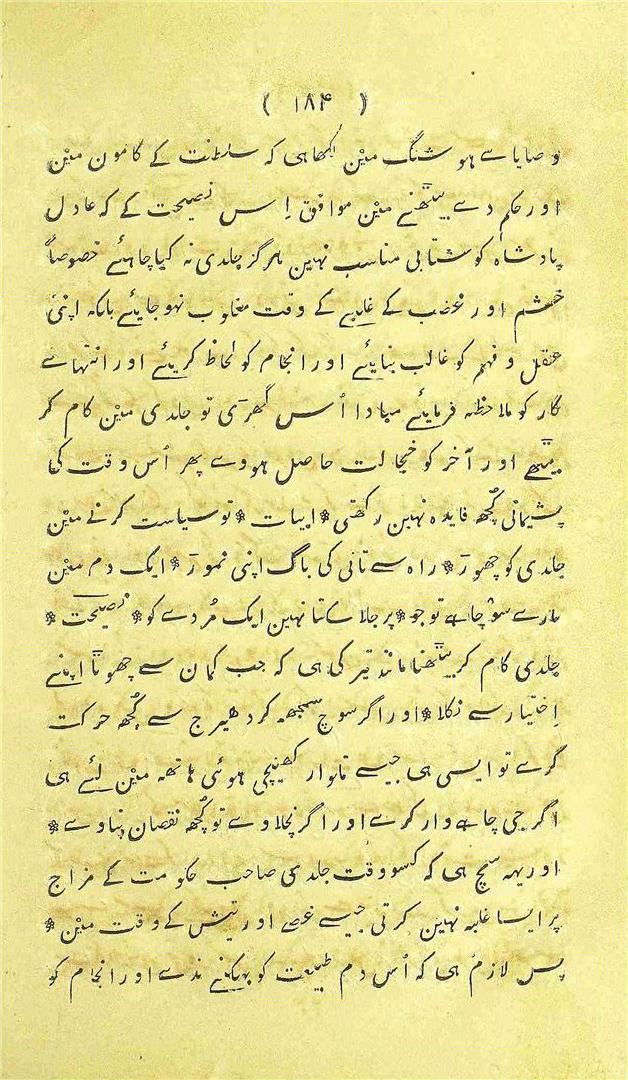 ( ۱۸۴ )
وصایاے ہوشنگ میں لکھا ہی کہ سلطنت کے کاموں میں
اور حکم دے بیٹھنے میں موافق اِس نصیحت کے کہ عادل
پادشاہ کو شتابی مناسب نہیں ہرگز جلدی نہ کیا چاہئے خصوصاً
خشم اور غضب کے غلبے کے وقت مغلوب نہو جایئے بلکہ اپنی
عقل و فہم کو غالب بنایئے اور انجام کو لحاظ کریئے اور انتہاے
کار کو ملاحظہ فرمایئے مبادا اُس گھڑی تو جلدی میں کام کر
بیٹھے اور آخر کو خجالت حاصل ہووے پھر اُس وقت کی
پشیمانی کُچھ فایدہ نہیں رکھتی * ابیات * تو سیاست کرنے میں
جلدی کو چھوڑ * راہ سے تانی کی باگ اپنی نموڑ * ایک دم میں
مارے سؤ چاہے تو جو * پر جلا سکتا نہیں ایک مُردے کو * نصیحت *
جلدی کام کر بیٹھنا مانند تیر کی ہی کہ جب کمان سے چھوٹا اپنے
اِختیار سے نکلا * اور اگر سوچ سمجھ کر دھیرج سے کُچھ حرکت
کرے تو ایسی ہی جیسے تلوار کھینچی ہوئی ہاتھ میں لئے ہی
اگر جی چاہے وار کرے اور اگر نچلاوے تو کُچھ نقصان نہاوے *
اور یہہ سچ ہی کہ کسو وقت جلدی صاحب حکومت کے مزاج
پر ایسا غلبہ نہیں کرتی جیسے غصے اور تیش کے وقت میں *
پس لازم ہی کہ اُس دم طبیعت کو بہکنے ندے اور انجام کو